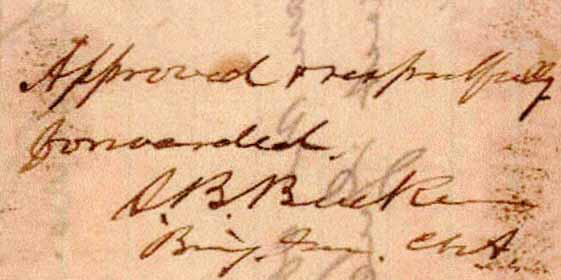 Approved & respectfully
forwarded.
S. B. Buckner
Brig. Gen. C.S.A.